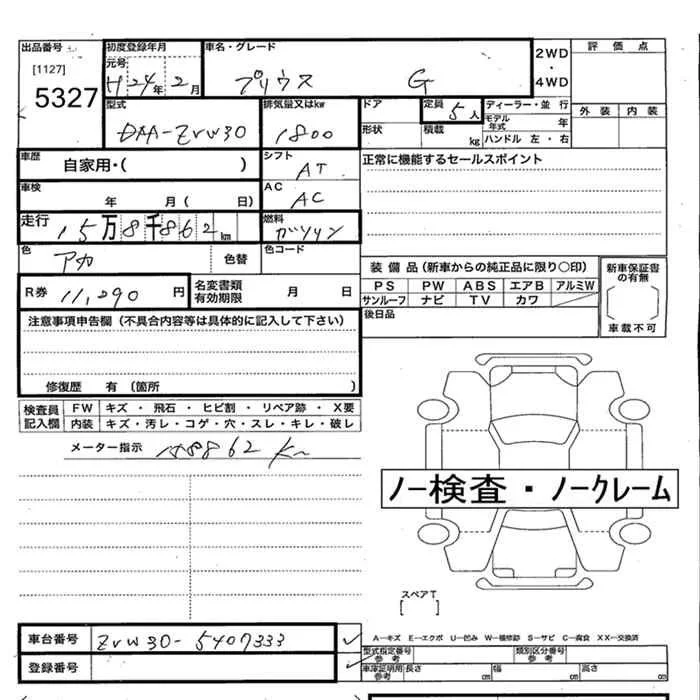 出品番号 初度登録年月 車名・グレード 2WD ・ 4WD 評価点
[1127] 元号
5327 H24年 2月 プリウス G
外装 内装
型式 排気量又はkw ドア 定員 5人 ディーラー・並行
DAA-ZVW30 1800 形状 積載 kg モデル年式 年
ハンドル 左・右
車歴 自家用・( ) シフト AT 正常に機能するセールスポイント
車検 年 月( 日) AC AC
走行 15万8千862km 燃料 ガソリン
色 アカ 色替 色コード
装備品(新車からの純正品に限り〇印) 新車保証書の有無
PS PW ABS エアB アルミW
サンルーフ ナビ TV カワ
車載不可
R券 11,290円 名変書類有効期限 月 日 後日品
注意事項申告欄(不具合内容等は具体的に記入して下さい)
修復歴 有(箇所 )
検査員記入欄 FW キズ・飛石・ヒビ割・リペア跡・X要
内装 キズ・汚レ・コゲ・穴・スレ・キレ・破レ
メーター指示 158862 km
ノー検査・ノークレーム
スペアT
[ ]
車台番号 ZVW30-5407333
登録番号
A―キズ E―エクボ U―凹み W―補修跡 S―サビ C―腐食 XX―交換済
型式指定番号 参考 類別区分番号 参考
車庫証明用 参考 長さ cm 幅 cm 高さ cm